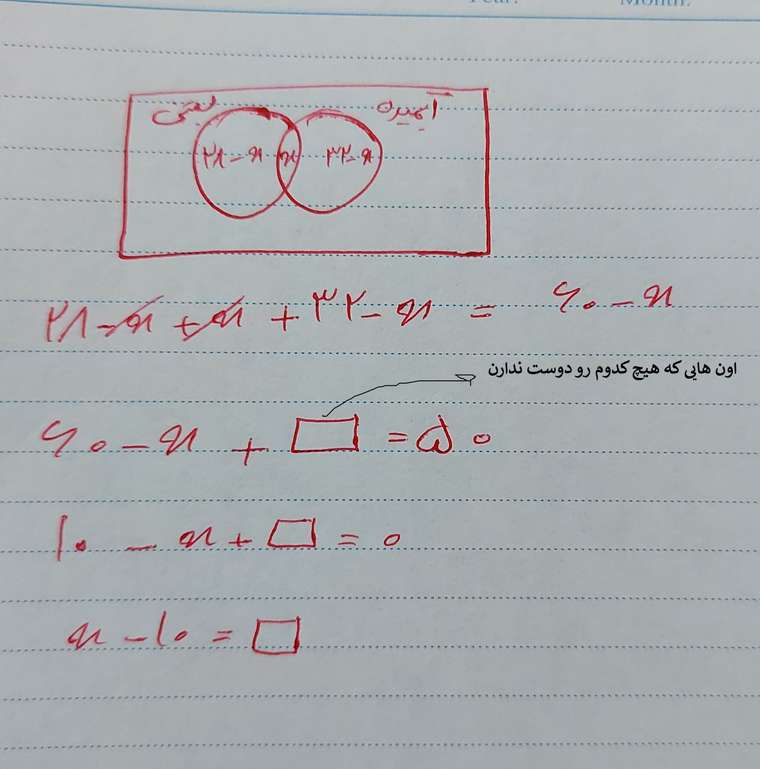 Year:
Month:
بستنی
آبمیوه
۲۸ - x
x
۳۲ - x
۲۸ - x + x + ۳۲ - x = ۶۰ - x
اون هایی که هیچ کدوم رو دوست ندارن
۶۰ - x + □ = ۵۰
۱۰ - x + □ = ۰
x - ۱۰ = □